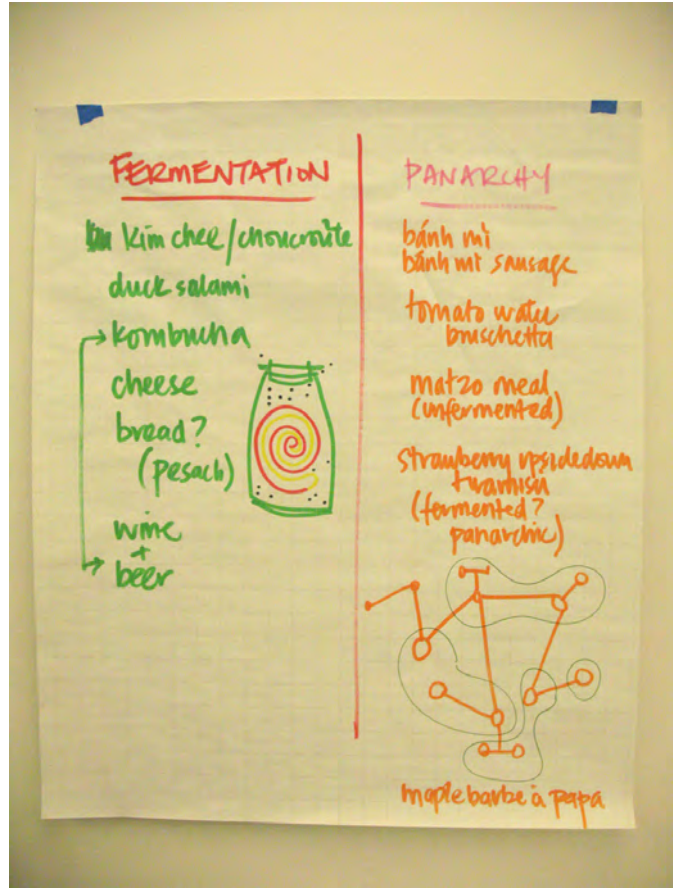 FERMENTATION
kim chee/choucroute
duck salami
kombucha
cheese
bread?
(pesach)
wine
+
beer
PANARCHY
bánh mì
bánh mì sausage
tomato water
bruschetta
matzo meal
(unfermented)
strawberry upsidedown
tiramisu
(fermented?
panarchic)
maple barbe à papa